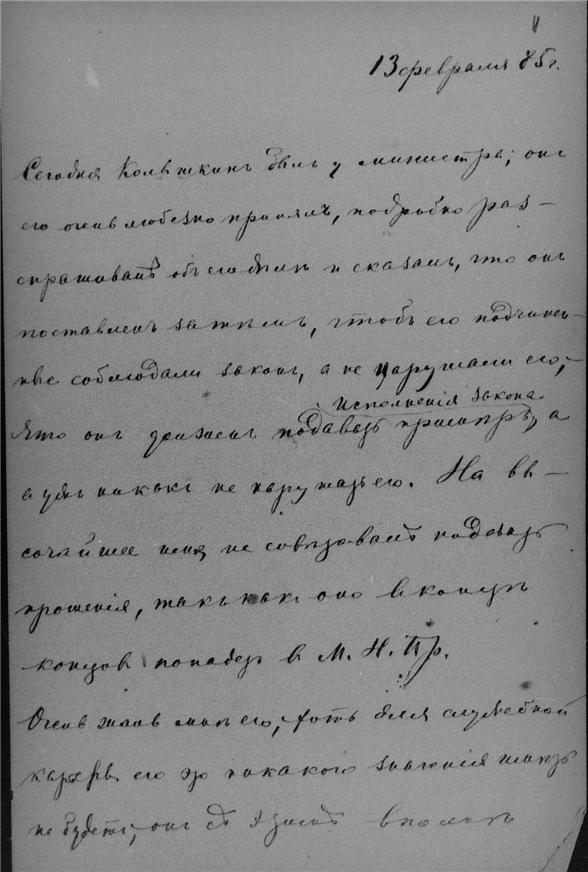 13 февраля 85 г.
Сегодня Колышкинъ былъ у министра; онъ
его очень любезно принялъ, подробно раз-
спрашивалъ объ его дѣлѣ и сказалъ, что онъ
поставленъ затѣмъ, чтобъ его подчинен-
ные соблюдали законъ, а не нарушали его,
исполненія закона
что онъ долженъ подавать примѣръ, а
а ужъ никакъ не нарушать его. На вы-
сочайшее имя не совѣтовалъ подавать
прошенія, такъ какъ оно въ концѣ
концовъ попадетъ в М. Н. Пр.
Очень жаль мнѣ его, хоть для служебной
его это никакого значенія имѣть
не будетъ, онъ